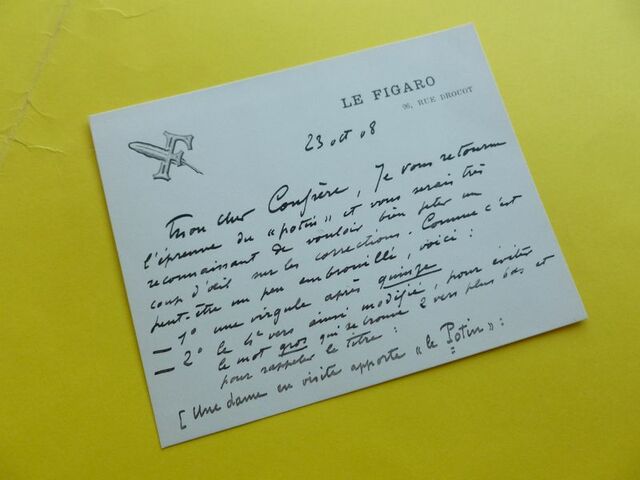 LE FIGARO
26, RUE DROUOT
F
23 oct 08
Mon cher Confrère, Je vous retourne
l'épreuve du "potin" et vous serais très
reconnaissant de vouloir bien jeter un
coup d'œil sur les corrections. Comme c'est
peut-être un peu embrouillé, voici :
— 1° une virgule après quinze
— 2° le 4e vers ainsi modifié, pour éviter
le mot gros qui se trouve 2 vers plus bas, et
pour rappeler le titre :
[ Une dame en visite apporte "le Potin" :